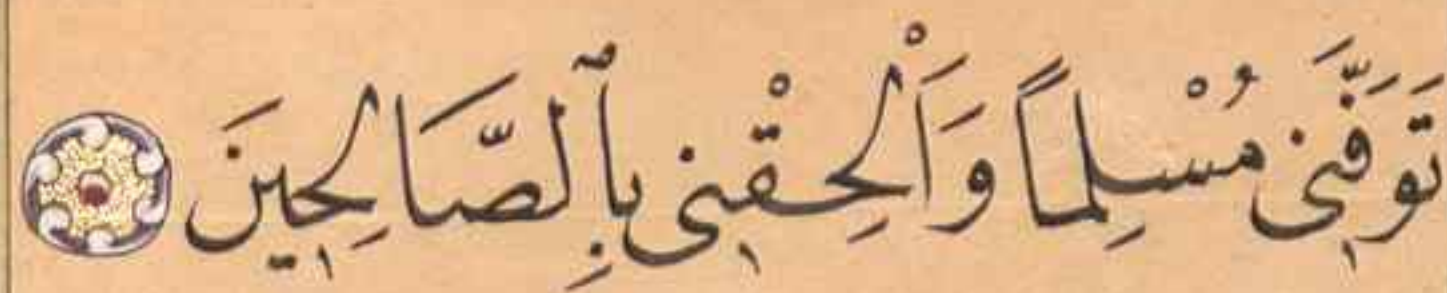 تَوَفَّنٖى مُسْلِمًا وَأَلْحِقْنٖى بِٱلصَّالِحٖينَ